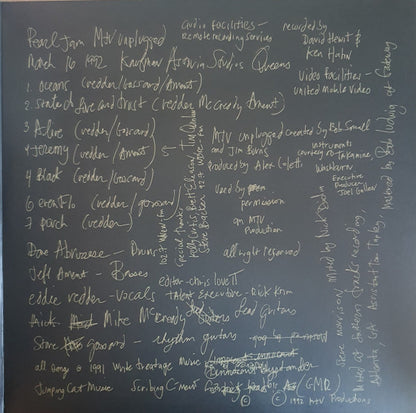 Pearl Jam MTV unplugged
March 16 1992 Kaufman Astoria Studios Queens
1. oceans (vedder/Gossard/Ament)
2. state of love and trust (vedder McCready Ament)
3 Alive (vedder/Gossard)
4 Jeremy (vedder/Ament)
4 Black (vedder/Gossard)
6 evenflo (vedder/gossard)
7 porch (vedder)
Dave Abruzzese - Drums
Jeff Ament - Basses
eddie vedder - vocals
Mike McCready Lead Guitars
Stone Gossard - rhythm guitars
all songs © 1991 write treatage music
Jumping Cat Music Scribing C-ment
(GMR)
© 1992 MTV Productions
audio facilities -
remote recording services
recorded by
David Hewitt &
Ken Hahn
Video facilities -
united mobile video
MTV unplugged created by Bob Small
and Jim Burns
Produced by Alex Coletti
instruments
courtesy
Washburn
Executive
Producer
Joel Gallen
used by
permission
an MTV
Production
all right reserved
editor - chris lovett
talent executive - Rick Krim
special thanks
Kelly Curtis
102.7 WNEW-fm
Mixed by Nick DiDia
Steve Morrison
Mixed at southern tracks recording
Atlanta, GA
mastered by Bob Ludwig at Gateway